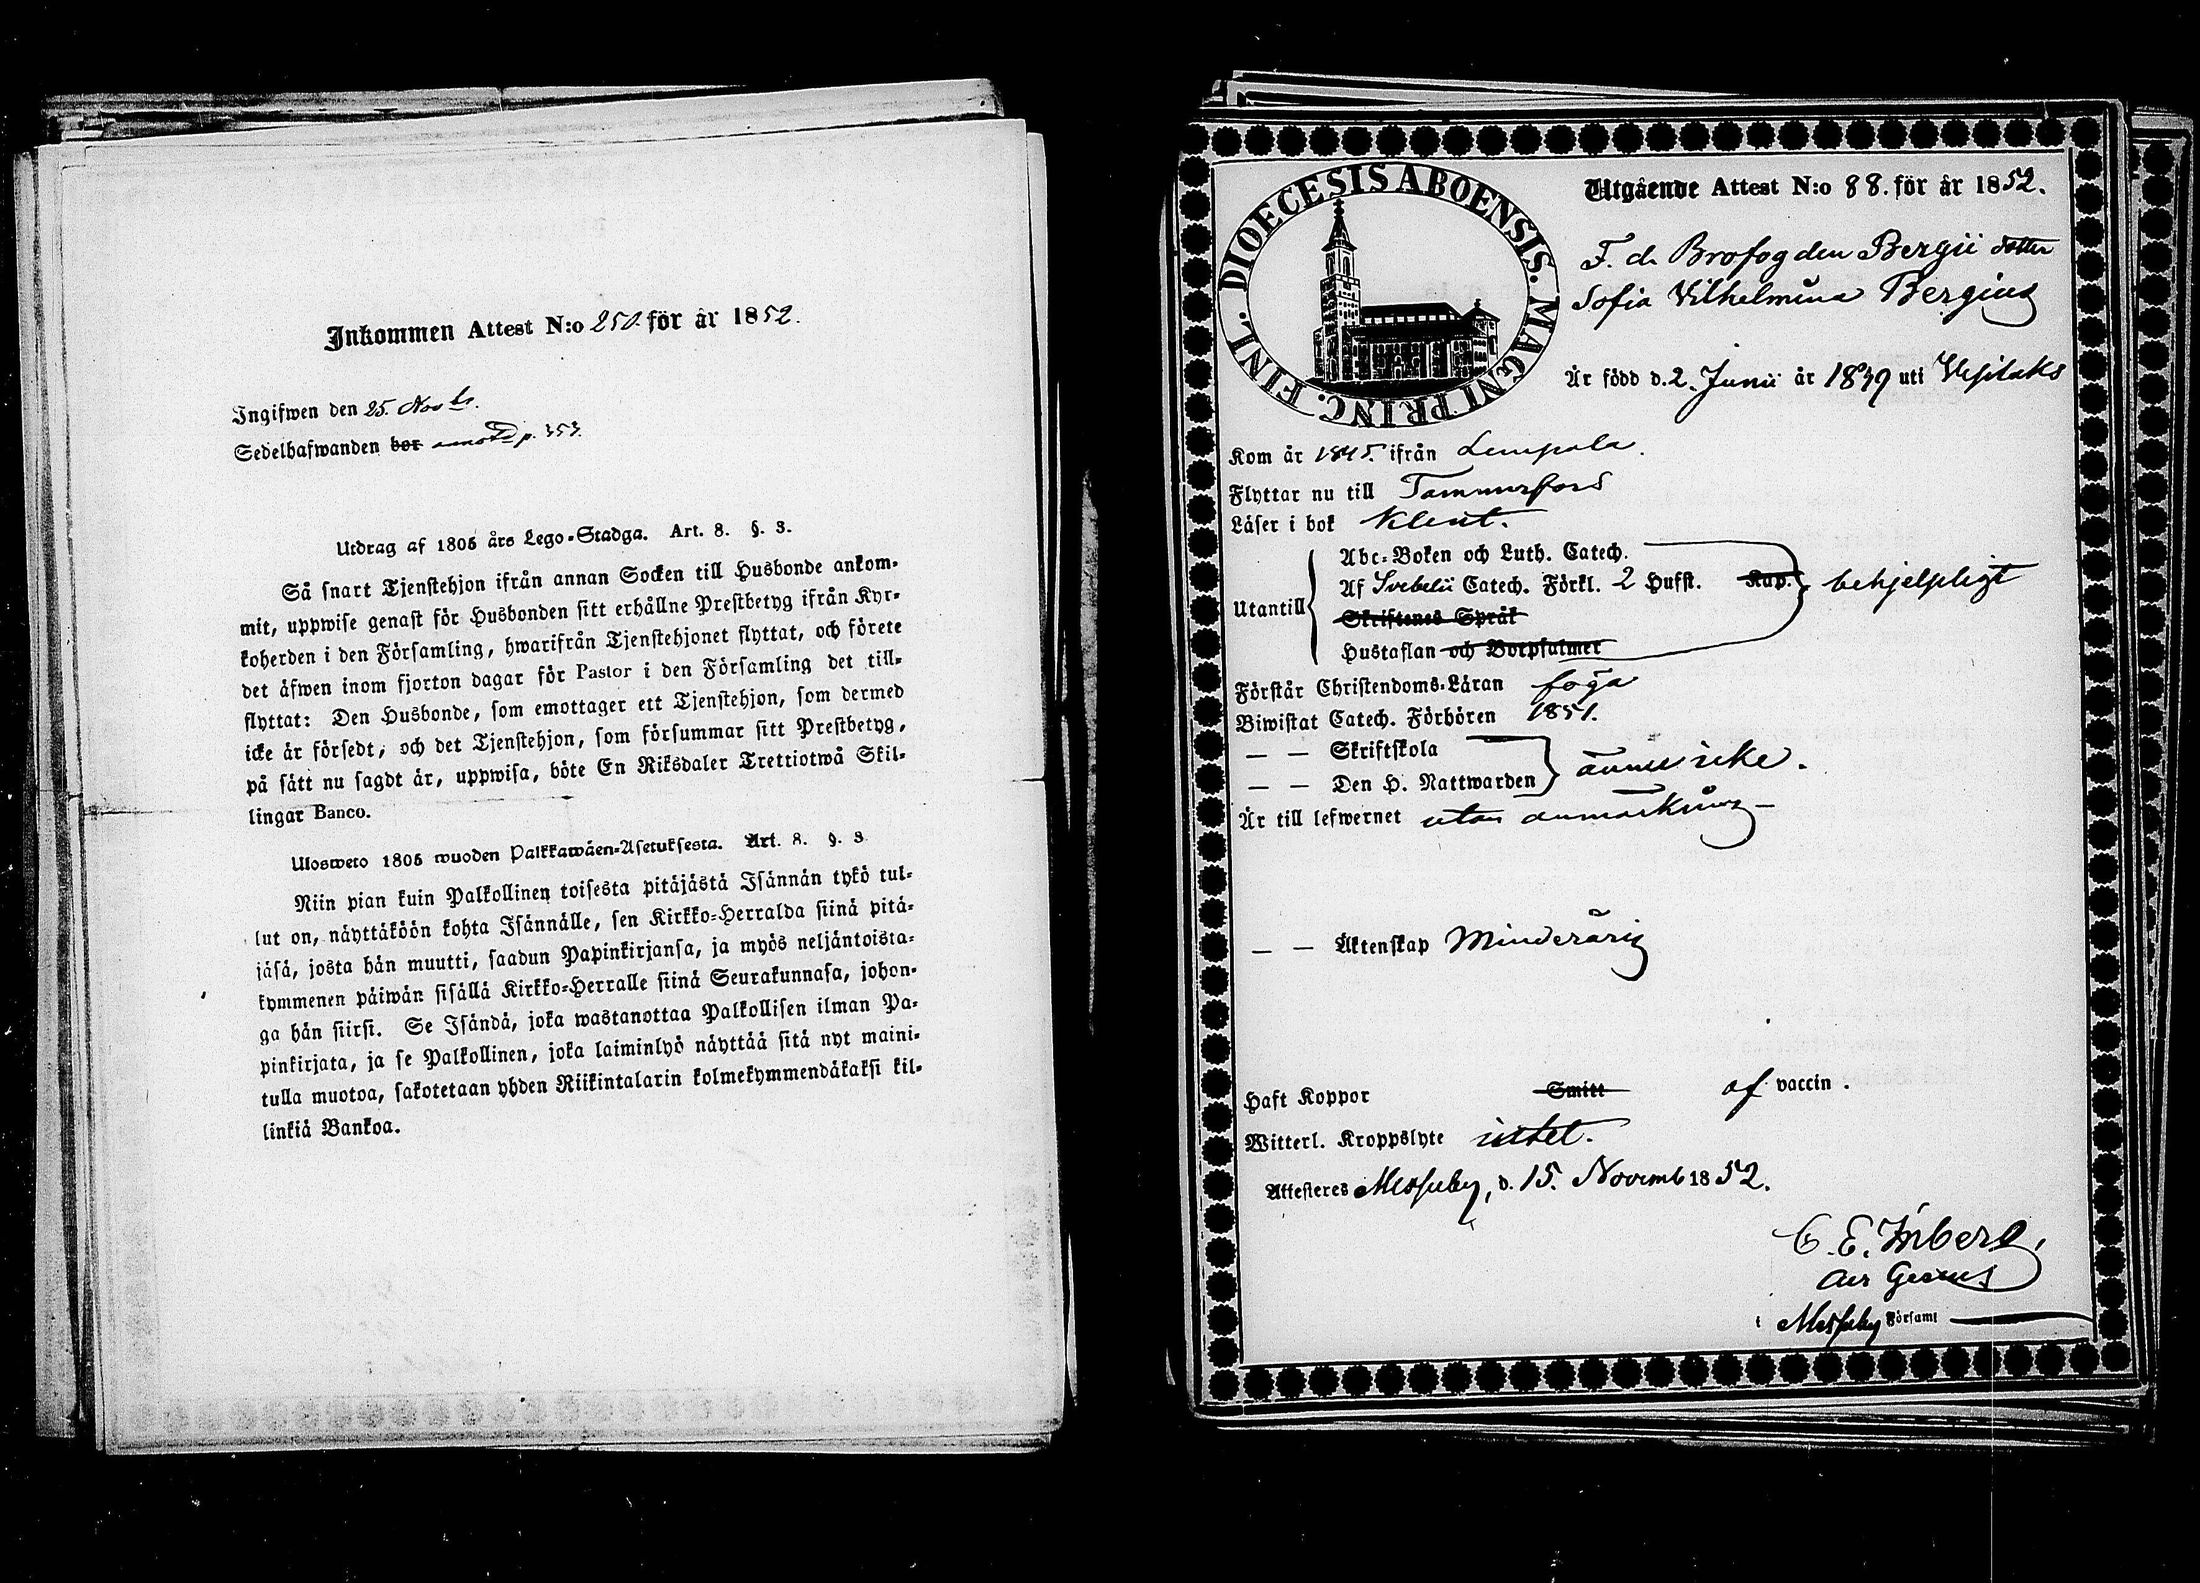 Inkommen Attest N:o 250. för år 1852.
Ingifwen den 25. Nov br.
Sedelhafwanden bor p. 353.
Utdrag af 1805 års Lego-Stadga. Art. 8. §. 3.
Så snart Tjenstehjon ifrån annan Socken till Husbonde ankom-
mit, uppwise genast för Husbonden sitt erhållne Prestbetyg ifrån Kyr-
koherden i den Församling, hwarifrån Tjenstehjonet flyttat, och förete
det äfwen inom fjorton dagar för Pastor i den Församling det till-
flyttat: Den Husbonde, som emottager ett Tjenstehjon, som dermed
icke är försedt, och det Tjenstehjon, som försummar sitt Prestbetyg,
på sätt nu sagdt är, uppwisa, böte En Riksdaler Trettiotwå Skil-
lingar Banco.
Ulosweto 1805 wuoden Palkkawäen-Asetuksesta. Art. 8. §. 3.
Niin pian kuin Palkollinen toisesta pitäjästä Isännän tykö tul-
lut on, näyttäköön kohta Isännälle, sen Kirkko-Herralda siinä pitä-
jäsä, josta hän muutti, saadun Papinkirjansa, ja myös neljäntoista-
kymmenen päiwän sisällä Kirkko-Herralle siinä Seurakunnasa, johon-
ga hän siirsi. Se Isändä, joka wastanottaa Palkollisen ilman Pa-
pinkirjata, ja se Palkollinen, joka laiminlyö näyttää sitä nyt maini-
tulla muotoa, sakotetaan yhden Riikintalarin kolmekymmendäkaksi kil-
linkiä Bankoa.
DIOECESIS ABOENSIS. MAGNI PRINC. FINL.
Utgående Attest N:o 88. för år 1852.
F. d. Brofogden Bergii dotter
Sofia Vilhelmina Bergius
Är född d. 2. Junii år 1839 uti Vesilaks
Kom år 1845. ifrån Lempala.
Flyttar nu till Tammerfors
Läser i bok klent.
Utantill
Abc-Boken och Luth. Catech.
Af Svebelii Catech. Förkl. 2 Hufst. Kap. behjelpligt
Skriftenes Språk
Hustaflan och Botpsalmer
Förstår Christendoms-Läran föga
Biwistat Catech. Förhören 1851.
— — Skriftskola
— — Den H. Nattwarden ännu icke.
Är till lefwernet utan anmärkning —
— — Äktenskap Minderårig
Haft Koppor Smitt af vaccin.
Witterl. Kroppslyte intet.
Attesteras Messuby, d. 15. Novemb 1852.
C. E.
i Messuby Församl